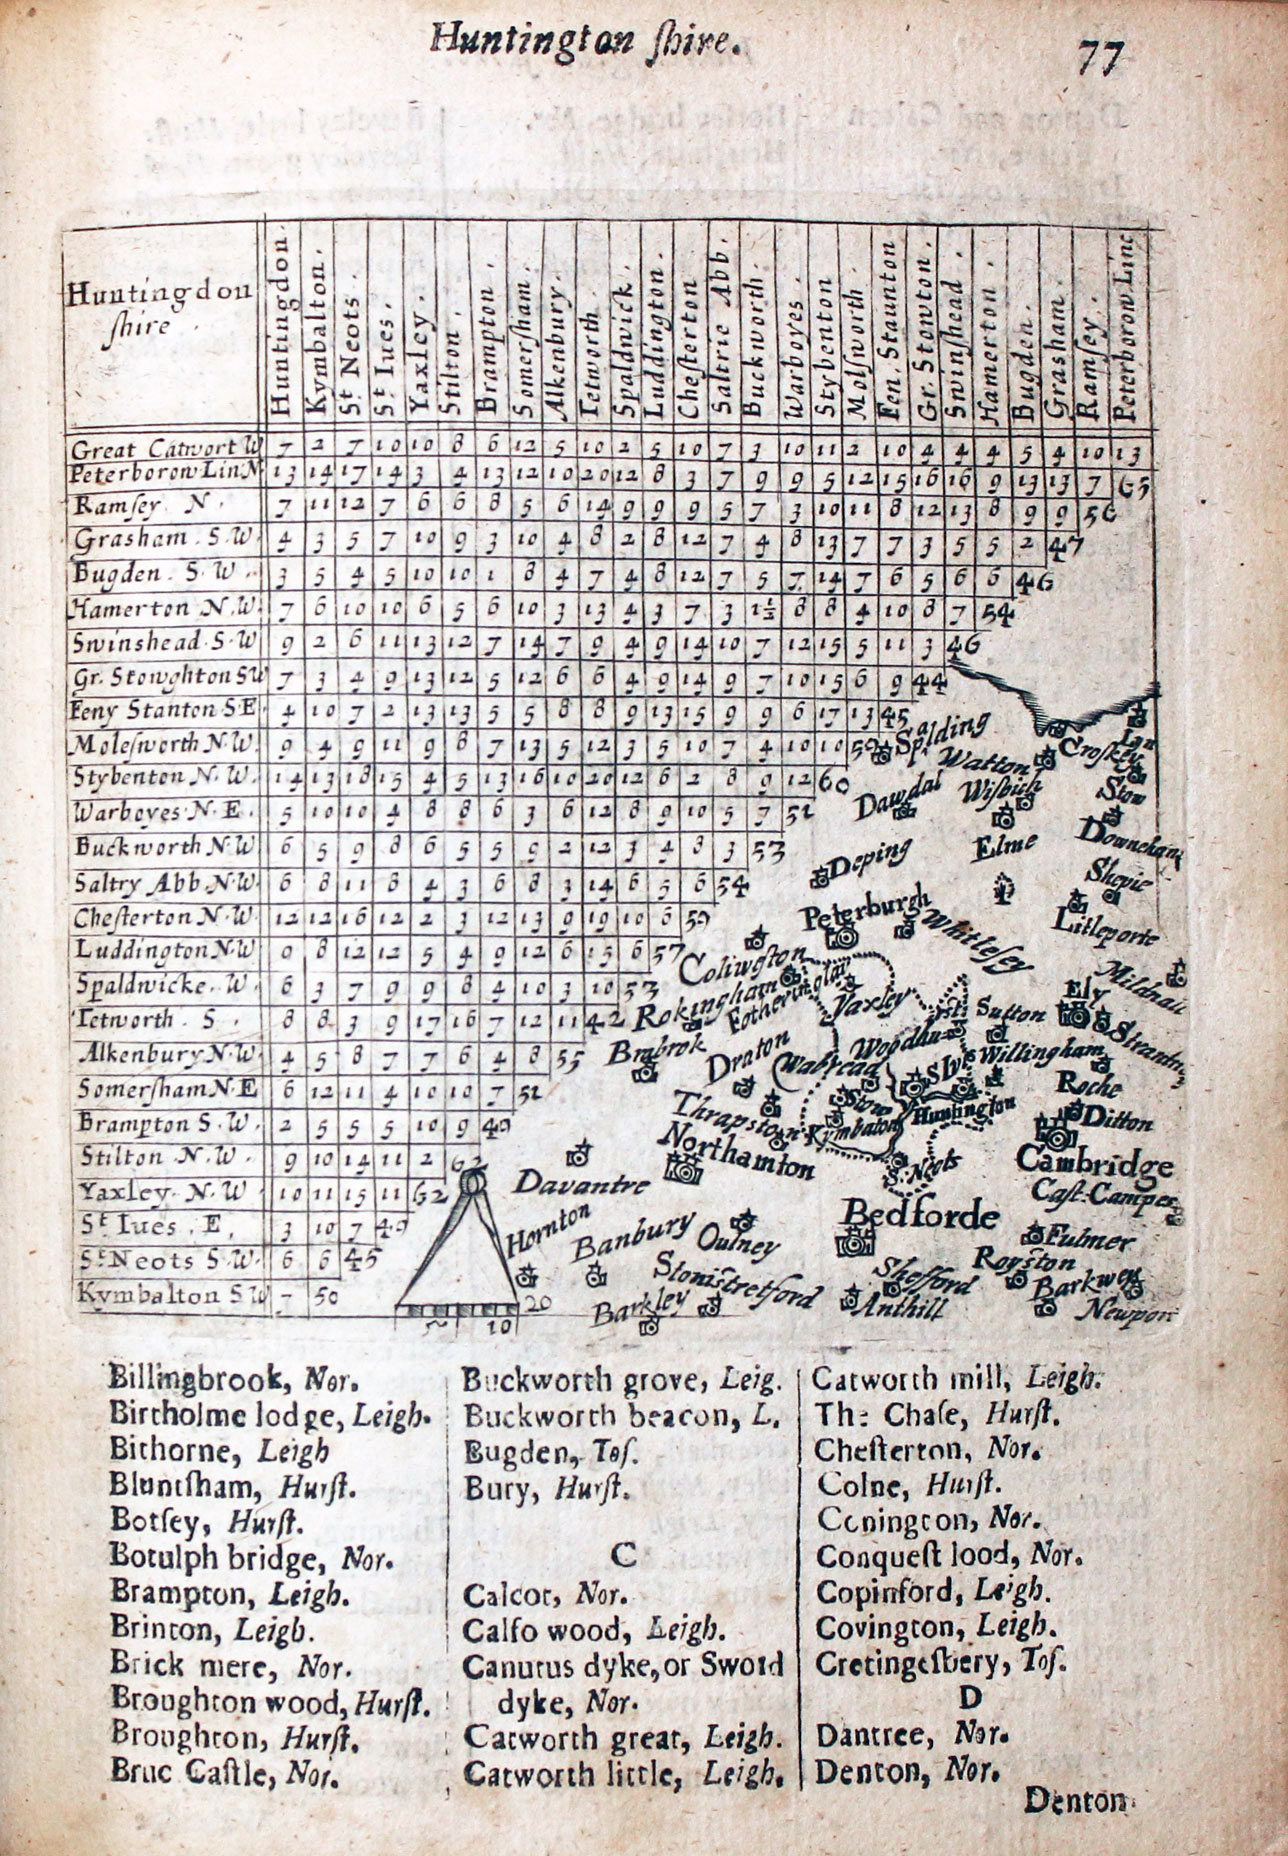 Huntington ſhire.
77
Huntingdon
ſhire
Huntingdon.
Kymbalton.
St. Neots.
St. Iues.
Yaxley.
Stilton.
Brampton.
Somerſham.
Alkenbury.
Tetworth.
Spaldwick.
Luddington.
Cheſterton
Saltrie Abb.
Buckworth.
Warboyes.
Stybenton
Molſworth.
Fen. Staunton
Gr. Stowton.
Swinſhead.
Hamerton.
Bugden.
Grasham.
Ramſey.
Peterborow Linc
Great Catwort W 7 2 7 10 10 8 6 12 5 10 2 5 10 7 3 10 11 2 10 4 4 4 5 4 10 13
Peterborow Lin.N 13 14 17 14 3 4 13 12 10 20 12 8 3 7 9 9 5 12 15 16 16 9 13 13 7 65
Ramſey. N. 7 11 12 7 6 6 8 5 6 14 9 9 9 5 7 3 10 11 8 12 13 8 9 9 56
Grasham. S.W. 4 3 5 7 10 9 3 10 4 8 2 8 12 7 4 8 13 7 7 3 5 5 2 47
Bugden. S.W. 3 5 4 5 10 10 1 8 4 7 4 8 12 7 5 7 14 7 6 5 6 6 46
Hamerton N.W. 7 6 10 10 6 5 6 10 3 13 4 3 7 3 1½ 8 8 4 10 8 7 54
Swinshead S.W 9 2 6 11 13 12 7 14 7 9 4 9 14 10 7 12 15 5 11 3 46
Gr. Stowghton SW 7 3 4 9 13 12 5 12 6 6 4 9 14 9 7 10 15 6 9 44
Feny Stanton S.E 4 10 7 2 13 13 5 5 8 8 9 13 15 9 9 6 17 13 45
Moleſworth N.W. 9 4 9 11 9 8 7 13 5 12 3 5 10 7 4 10 10 50
Stybenton N.W. 14 13 18 15 4 5 13 16 10 20 12 6 2 8 9 12 60
Warboyes N.E. 5 10 10 4 8 8 6 3 6 12 8 9 10 5 7 52
Buckworth N.W 6 5 9 8 6 5 5 9 2 12 3 4 8 3 53
Saltry Abb. N.W. 6 8 11 8 4 3 6 8 3 14 6 5 6 54
Cheſterton N.W. 12 12 16 12 2 3 12 13 9 19 10 6 59
Luddington N.W 9 8 12 12 5 4 9 12 6 15 6 57
Spaldwicke. W. 6 3 7 9 9 8 4 10 3 10 53
Tetworth. S. 8 8 3 9 17 16 7 12 11 42
Alkenbury N.W 4 5 8 7 7 6 4 8 55
Somerſham N.E 6 12 11 4 10 10 7 52
Brampton S.W. 2 5 5 5 10 9 49
Stilton N.W. 9 10 14 11 2 62
Yaxley. N.W 10 11 15 11 62
St. Iues. E. 3 10 7 49
St. Neots S.W. 6 6 45
Kymbalton S W 7 50
Spalding
Lan
Croſkeys
Watton
Wiſbich
Stow
Dawdal
Elme
Downeham
Deping
Shepie
Peterburgh
Whitleſey
Litleporte
Coliwgſton
Mildnall
Rokingham
Fotheringhay
Yaxley
Ely
Sutton
Brabrok
Draton
Wabread
Woodhurst
S. Ive
Willingham
Roche
Thrapston
Stow
Kymbaton
Huntington
Ditton
Northamton
S. Neots
Cambridge
Davantre
Caſt. Campes
Hornton
Banbury
Oulney
Bedforde
Fulmer
Stonistretford
Shefford
Royston
Barkwey
Barkley
Anthill
Newport
10 20
Billingbrook, Nor.
Birtholme lodge, Leigh.
Bithorne, Leigh
Bluntſham, Hurſt.
Botſey, Hurſt.
Botulph bridge, Nor.
Brampton, Leigh.
Brinton, Leigh.
Brick mere, Nor.
Broughton wood, Hurſt.
Broughton, Hurſt.
Bruc Caſtle, Nor.
Buckworth grove, Leig.
Buckworth beacon, L.
Bugden, Toſ.
Bury, Hurſt.
C
Calcot, Nor.
Calſo wood, Leigh.
Canutus dyke, or Sword
dyke, Nor.
Catworth great, Leigh.
Catworth little, Leigh.
Catworth mill, Leigh.
The Chaſe, Hurſt.
Cheſterton, Nor.
Colne, Hurſt.
Conington, Nor.
Conqueſt lood, Nor.
Copinford, Leigh.
Covington, Leigh.
Cretingeſbery, Toſ.
D
Dantree, Nor.
Denton, Nor.
Denton